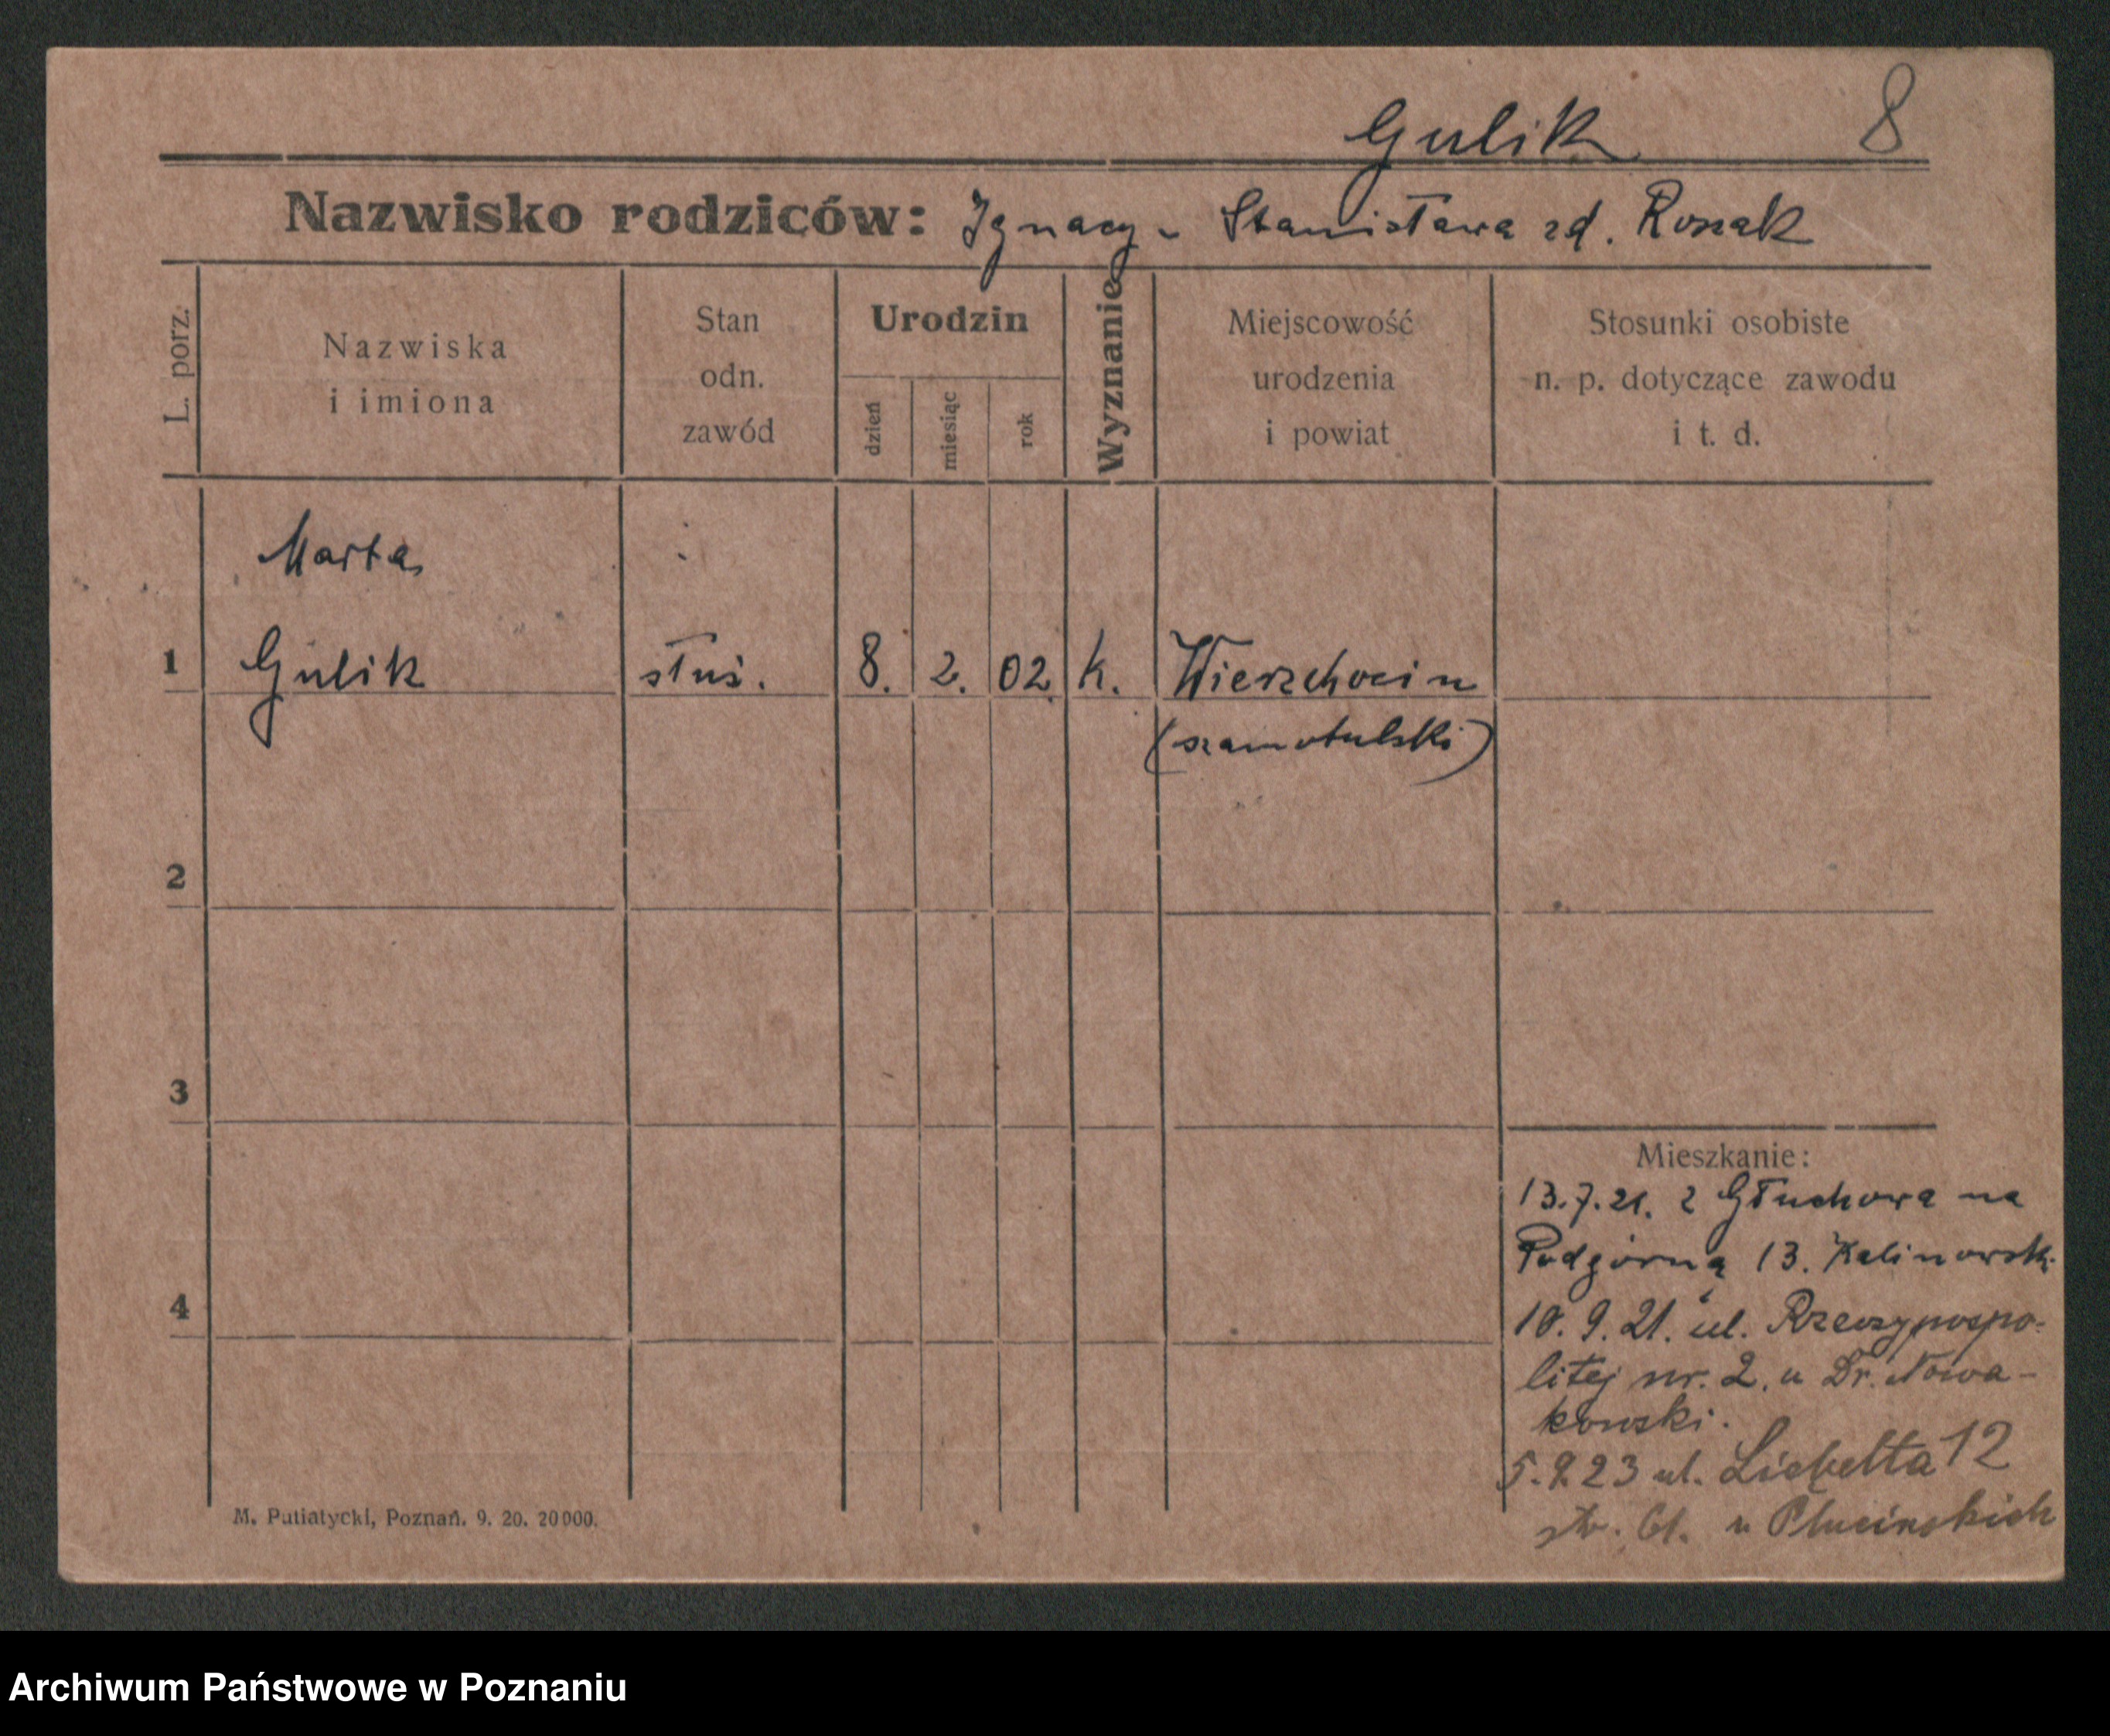 Gulik 8
Nazwisko rodziców: Ignacy - Stanisława zd. Roszak
L. porz.
Nazwiska
i imiona
Stan
odn.
zawód
Urodzin
dzień
miesiąc
rok
Wyznanie
Miejscowość
urodzenia
i powiat
Stosunki osobiste
n. p. dotyczące zawodu
i t. d.
Marta
1 Gulik służ. 8. 2. 02 k. Wierzchocin
(szamotulski)
2
3
4
Mieszkanie:
13.7.21. z Głuchowa na
Podgórną 13. Kalinowski
10. 9. 21. ul. Rzeczypospo-
litej nr. 2. u Dr. Nowa-
kowski.
5.9.23 ul. Liebelta 12
u Plucinskich
M. Putiatycki, Poznań. 9. 20. 20000.
Archiwum Państwowe w Poznaniu